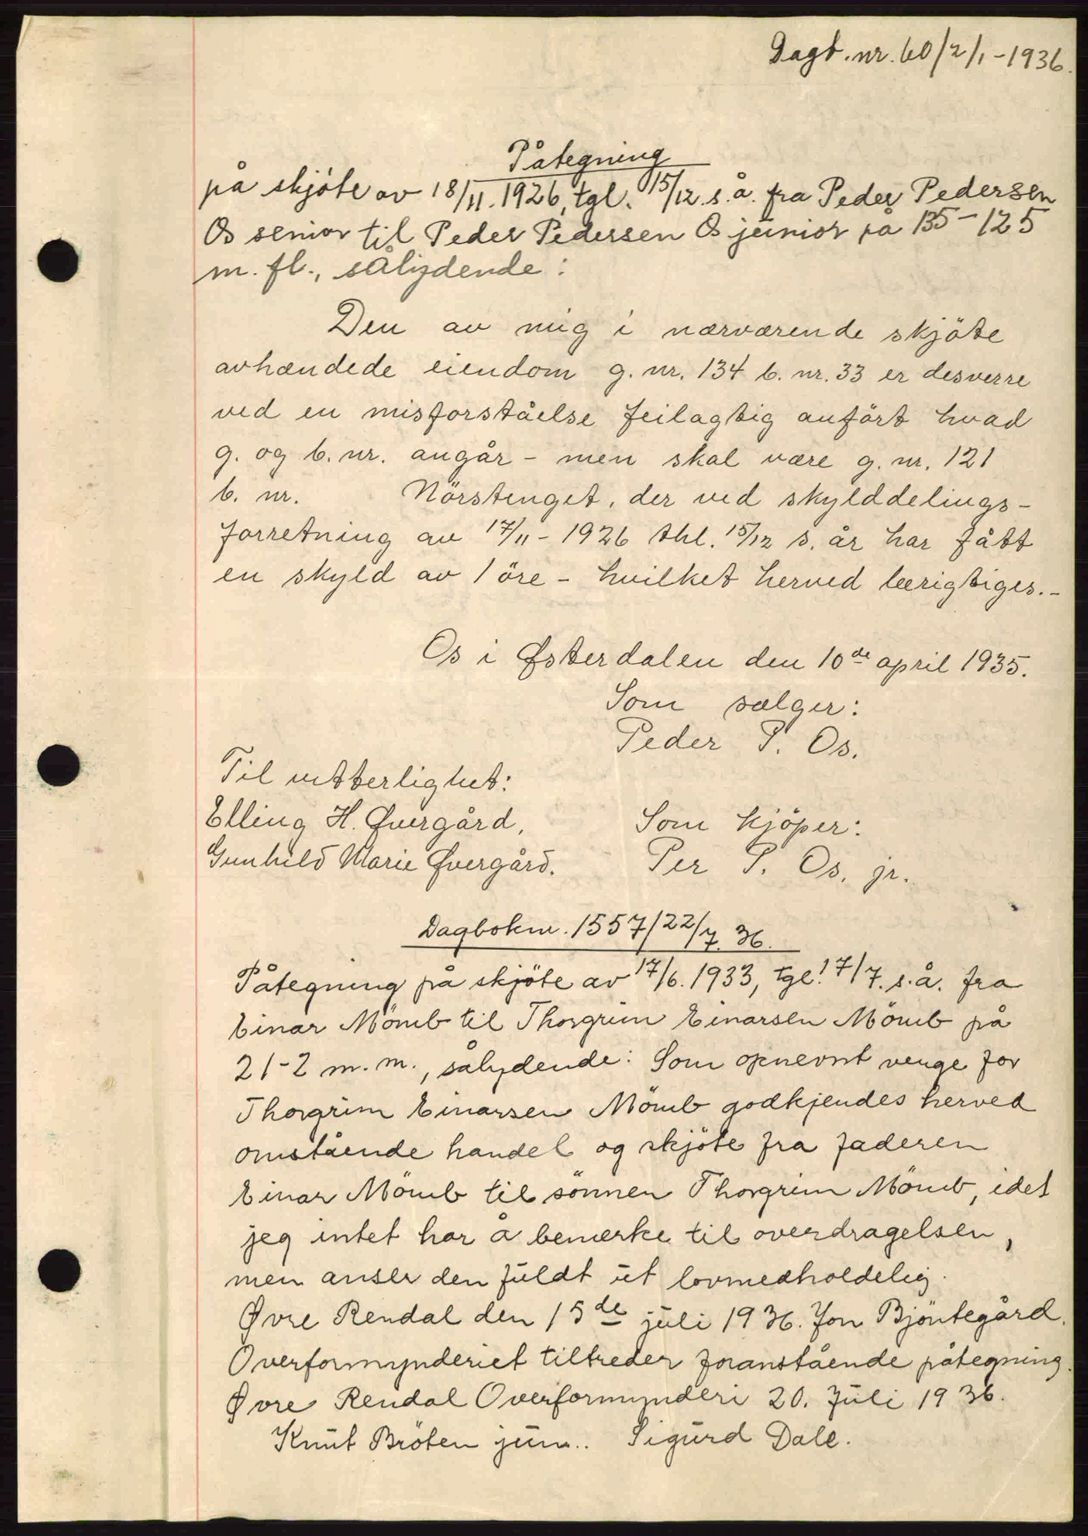 Dagb. nr. 60/2/1-1936.
Påtegning
på skjöte av 18/11.1926, tgl. 15/12 s.å. fra Peder Pedersen
Os senior til Peder Pedersen Os junior på 135-125
m. fl., sålydende:
Den av mig i nærværende skjöte
avhændede eiendom g. nr. 134 b. nr. 33 er desverre
ved en misforståelse feilagtig anfört hvad
g. og b. nr. angår - men skal være g. nr. 121
b. nr. Nörstenget, der ved skylddelings-
forretning av 17/11-1926 thl. 15/12 s. år har fått
en skyld av 1 öre - hvilket herved berigtiges.-
Os i Østerdalen den 10de april 1935.
Som sælger:
Peder P. Os.
Til vitterlighet:
Elling H. Øvergård,
Gunhild Marie Øvergård.
Som kjöper:
Per P. Os. jr.
Dagboknr. 1557/22/7.36.
Påtegning på skjöte av 17/6.1933, tgl. 17/7. s.å. fra
Einar Mömb til Thorgrim Einarsen Mömb på
21-2 m. m., sålydende: Som opnevnt verge for
Thorgrim Einarsen Mömb godkjendes herved
omstående handel og skjöte fra faderen
Einar Mömb til sönnen Thorgrim Mömb, idet
jeg intet har å bemerke til overdragelsen,
men anser den fuldt ut lovmedholdelig.
Øvre Rendal den 15de juli 1936. Jon Bjöntegård.
Overformynderiet tiltreder foranstående påtegning.
Øvre Rendal Overformynderi 20. Juli 1936.
Knut Bröten jun.. Sigurd Dale.